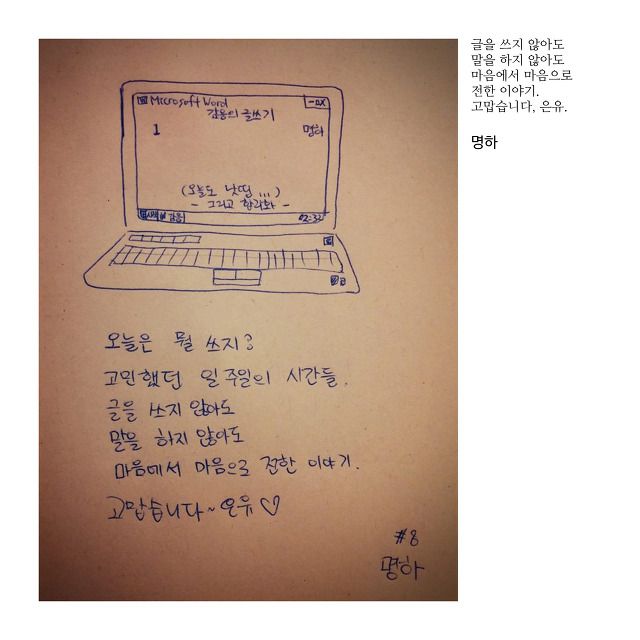 Microsoft Word
감응의 글쓰기
1 명하
(오늘도 낫띵 ...)
- 그리고 합리화 -
시작 감응 02:32
오늘은 뭘 쓰지?
고민했던 일주일의 시간들.
글을 쓰지 않아도
말을 하지 않아도
마음에서 마음으로 전한 이야기.
고맙습니다~ 은유♡
#8
명하
글을 쓰지 않아도
말을 하지 않아도
마음에서 마음으로
전한 이야기.
고맙습니다, 은유.
명하